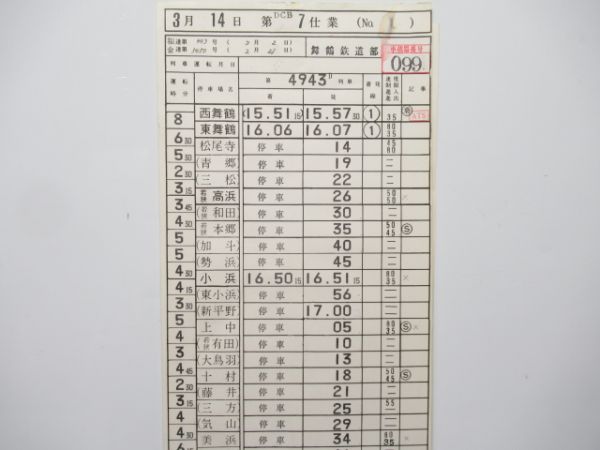 3月 14日 第 DCB 7 仕業 (No. 1)
舞鶴鉄道部
車掌携帯番号
099
列車運転月日
運転時分 停車場名 第 4943D 列車 着線 記事
着 発
西舞鶴 15.51 15 15.57 30 ① 35
8
東舞鶴 16.06 16.07 ① 80 35 ATS
6 30
松尾寺 停車 14 45 80
5
(青郷 停車 19 二
2 30
(三松 停車 22 二
3 15
若狭高浜 停車 26 50 50 ×
3 45
(若狭和田) 停車 30 二
4 30
若狭本郷 停車 35 50 45 Ⓢ
5
(加斗) 停車 40 二
5
(勢浜) 停車 45 二
4 30
小浜 16.50 15 16.51 15 80 35 ×
4 15
(東小浜) 停車 56 二
3 30
(新平野) 停車 17.00 二
5
上中 停車 05 80 35 Ⓢ×
4
(若狭有田) 停車 10 二
3
(大鳥羽 停車 13 二
4 45
十村 停車 18 50 45 Ⓢ
2 30
(藤井 停車 21 二
3 15
(三方 停車 25 55 二
4
(気山 停車 29 二
4
美浜 停車 34 80 35 ×
6 30